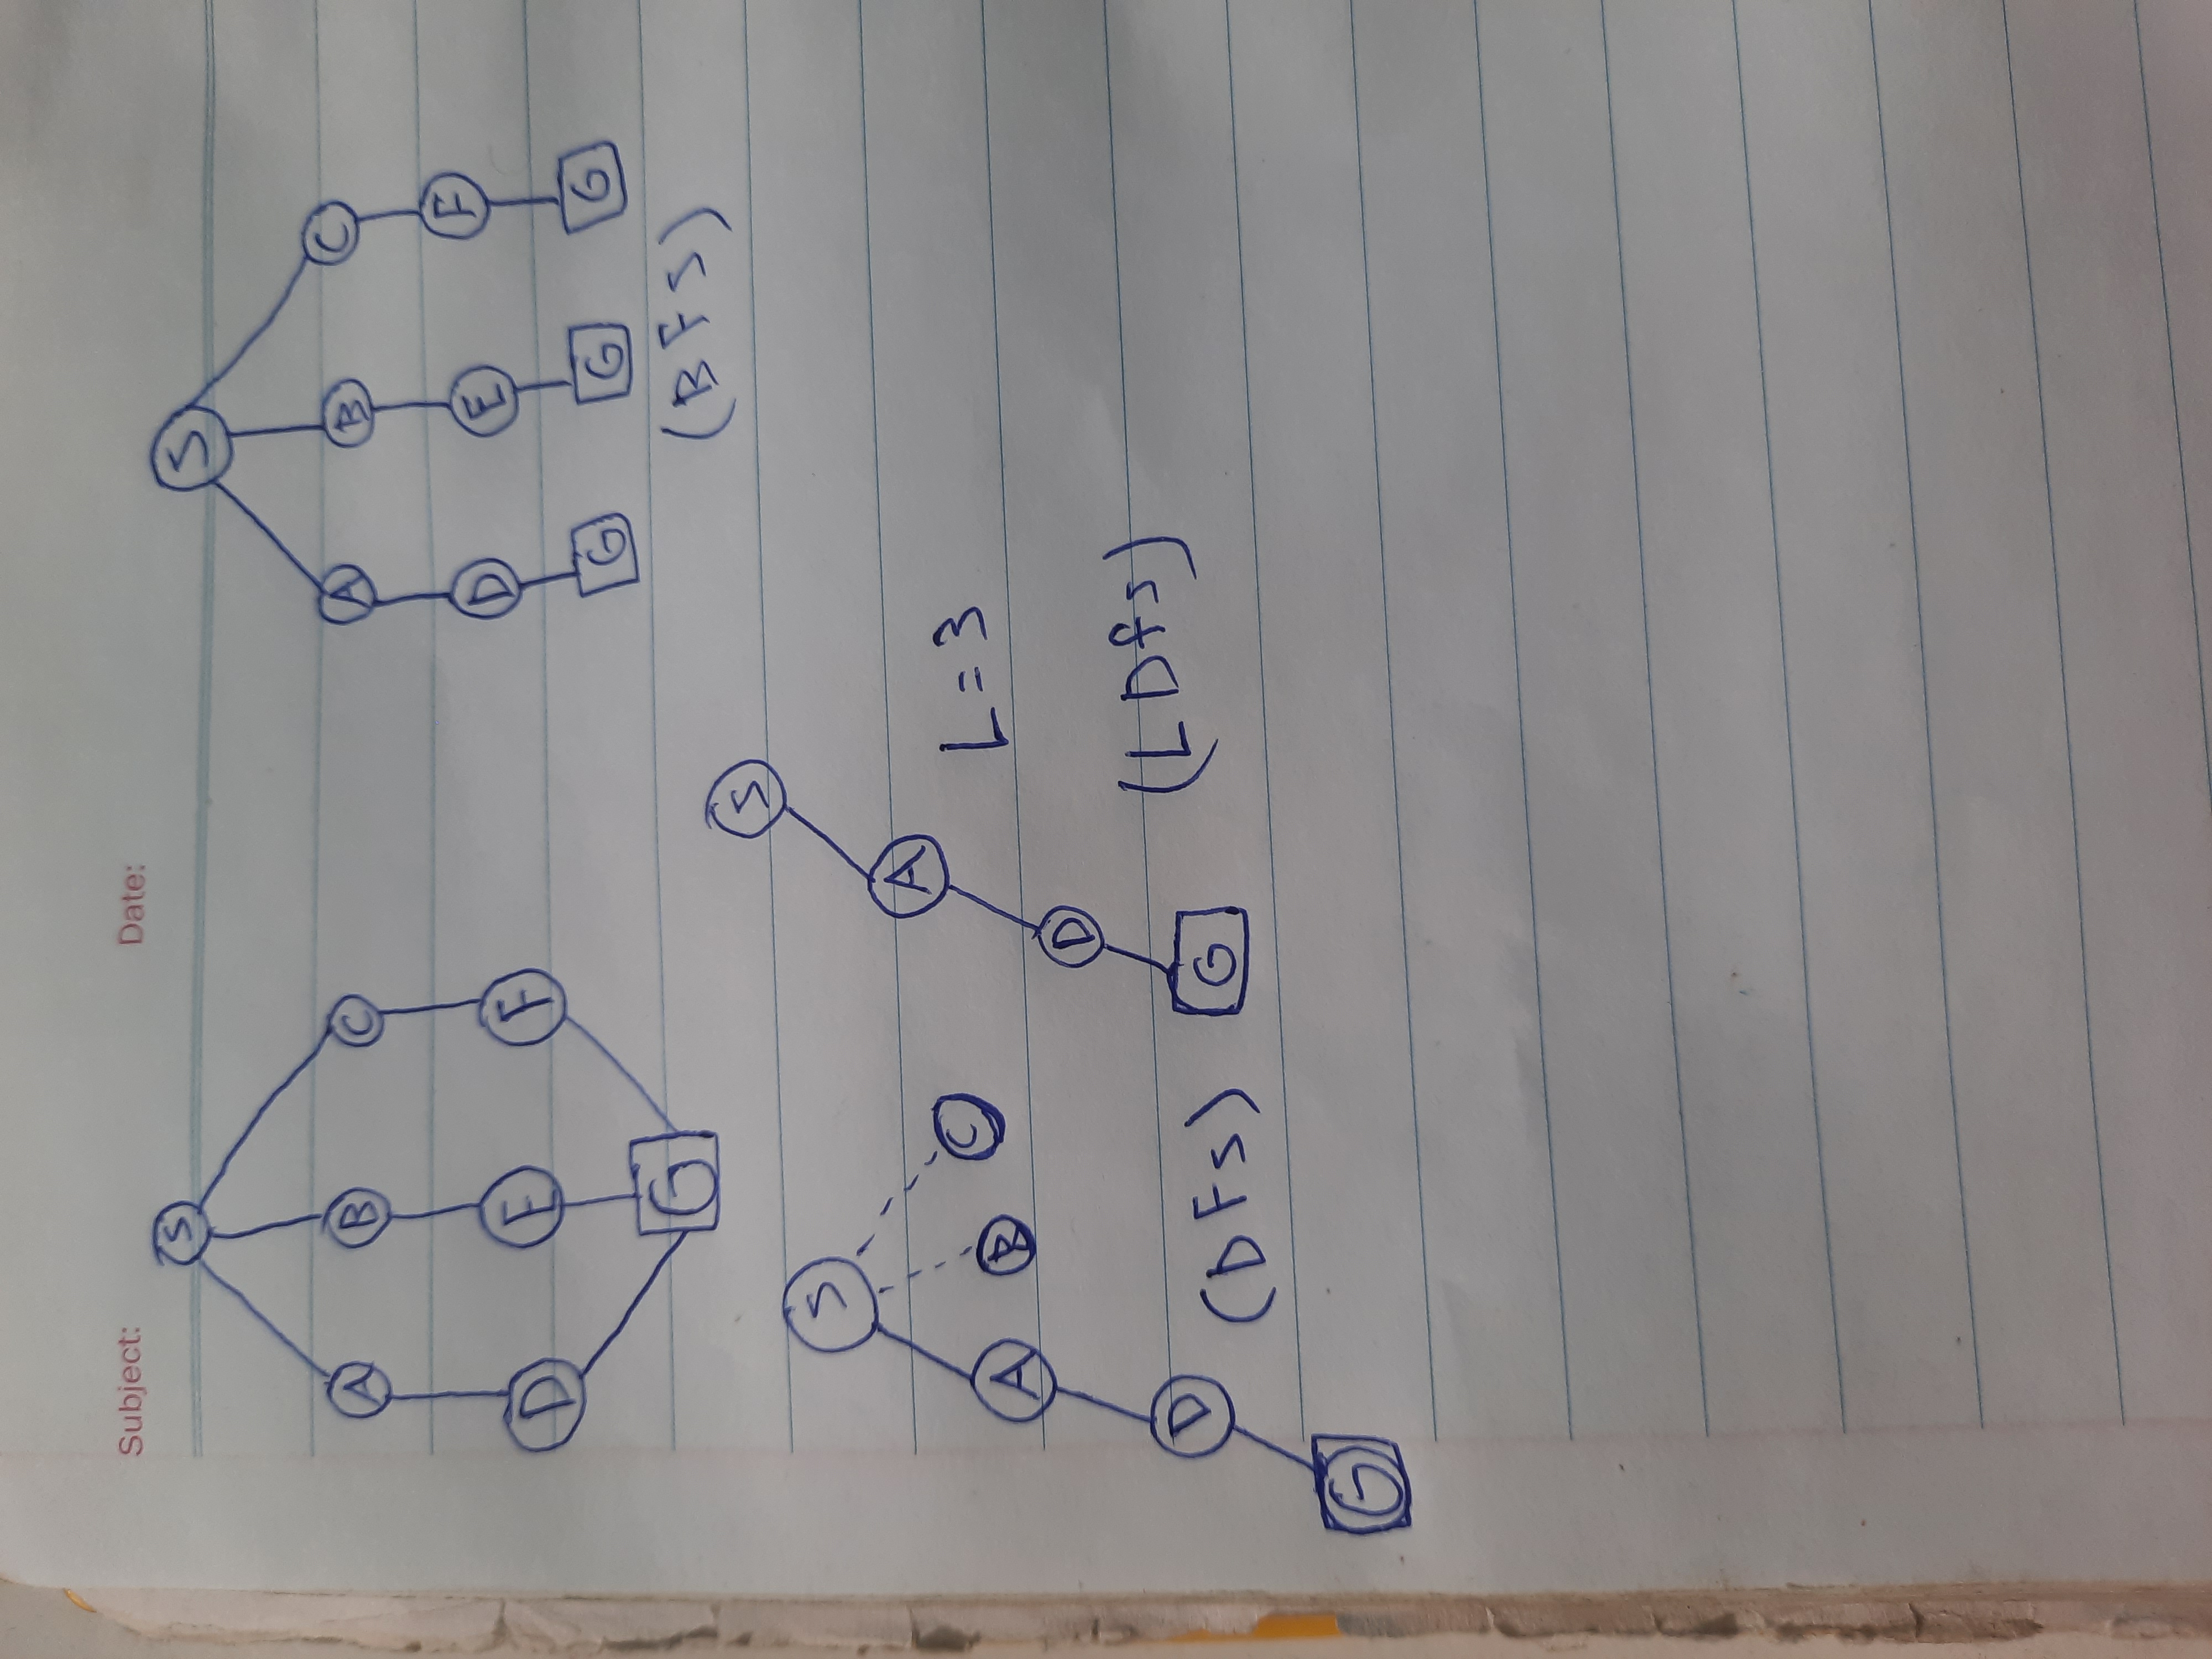 Subject: Date:
S
A B C
D E F
G
S
A B C
D E F
G G G
(BFS)
S
A B C
D
G
(DFS)
S
A
L=3
D
(LDfs)
G